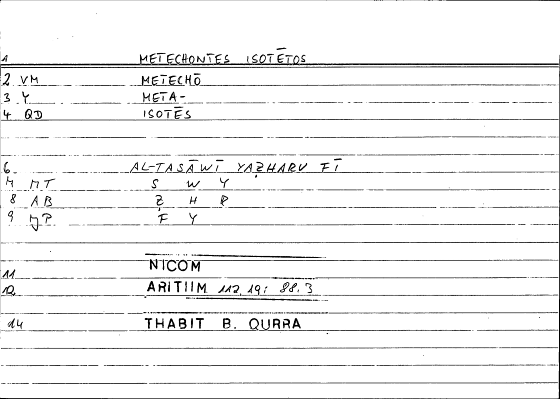 1 METECHONTES ISOTĒTOS
2 VM METECHŌ
3 Y META-
4 QD ISOTĒS
6 AL-TASĀWĪ YAẒHARU FĪ
MT S W Y
8 AB Ẓ H R
9 F Y
11 NICOM
12 ARITIIM 112,19; 88.3
14 THABIT B. QURRA